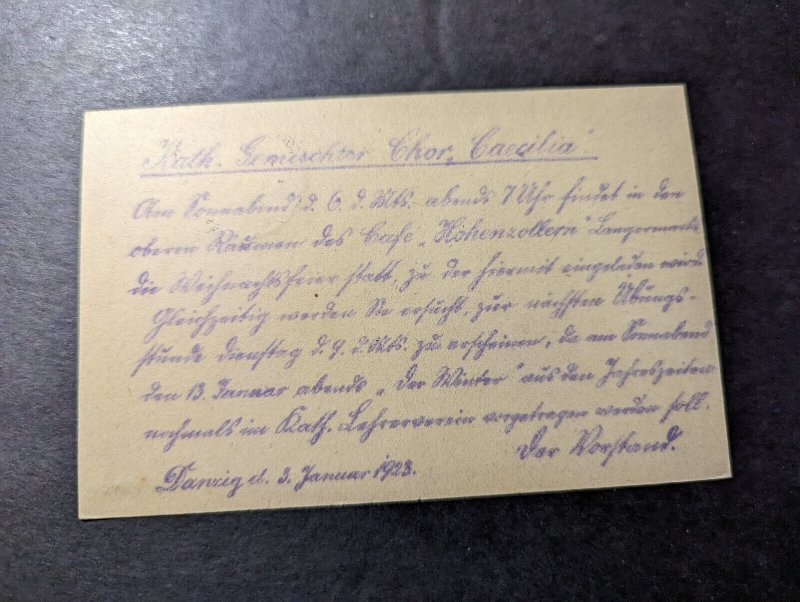 Kath. Gemischter Chor „Caecilia“.
Am Sonnabend, d. 6. d. Mts. abends 7 Uhr findet in den
oberen Räumen des Cafe „Hohenzollern“ Langermarkt
die Weihnachtsfeier statt, zu der hiermit eingeladen wird.
Gleichzeitig werden Sie ersucht, zur nächsten Übungs-
stunde Dienstag d. 9. d. Mts. zu erscheinen, da am Sonnabend
den 13. Januar abends „Der Winter“ aus den Jahreszeiten
nochmals im Kath. Lehrerverein vorgetragen werden soll.
Der Vorstand.
Danzig d. 3. Januar 1923.